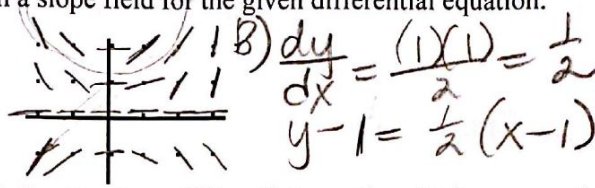 a slope field for the given differential equation.
B) dy/dx = (1)(1)/2 = 1/2
y-1 = 1/2 (x-1)